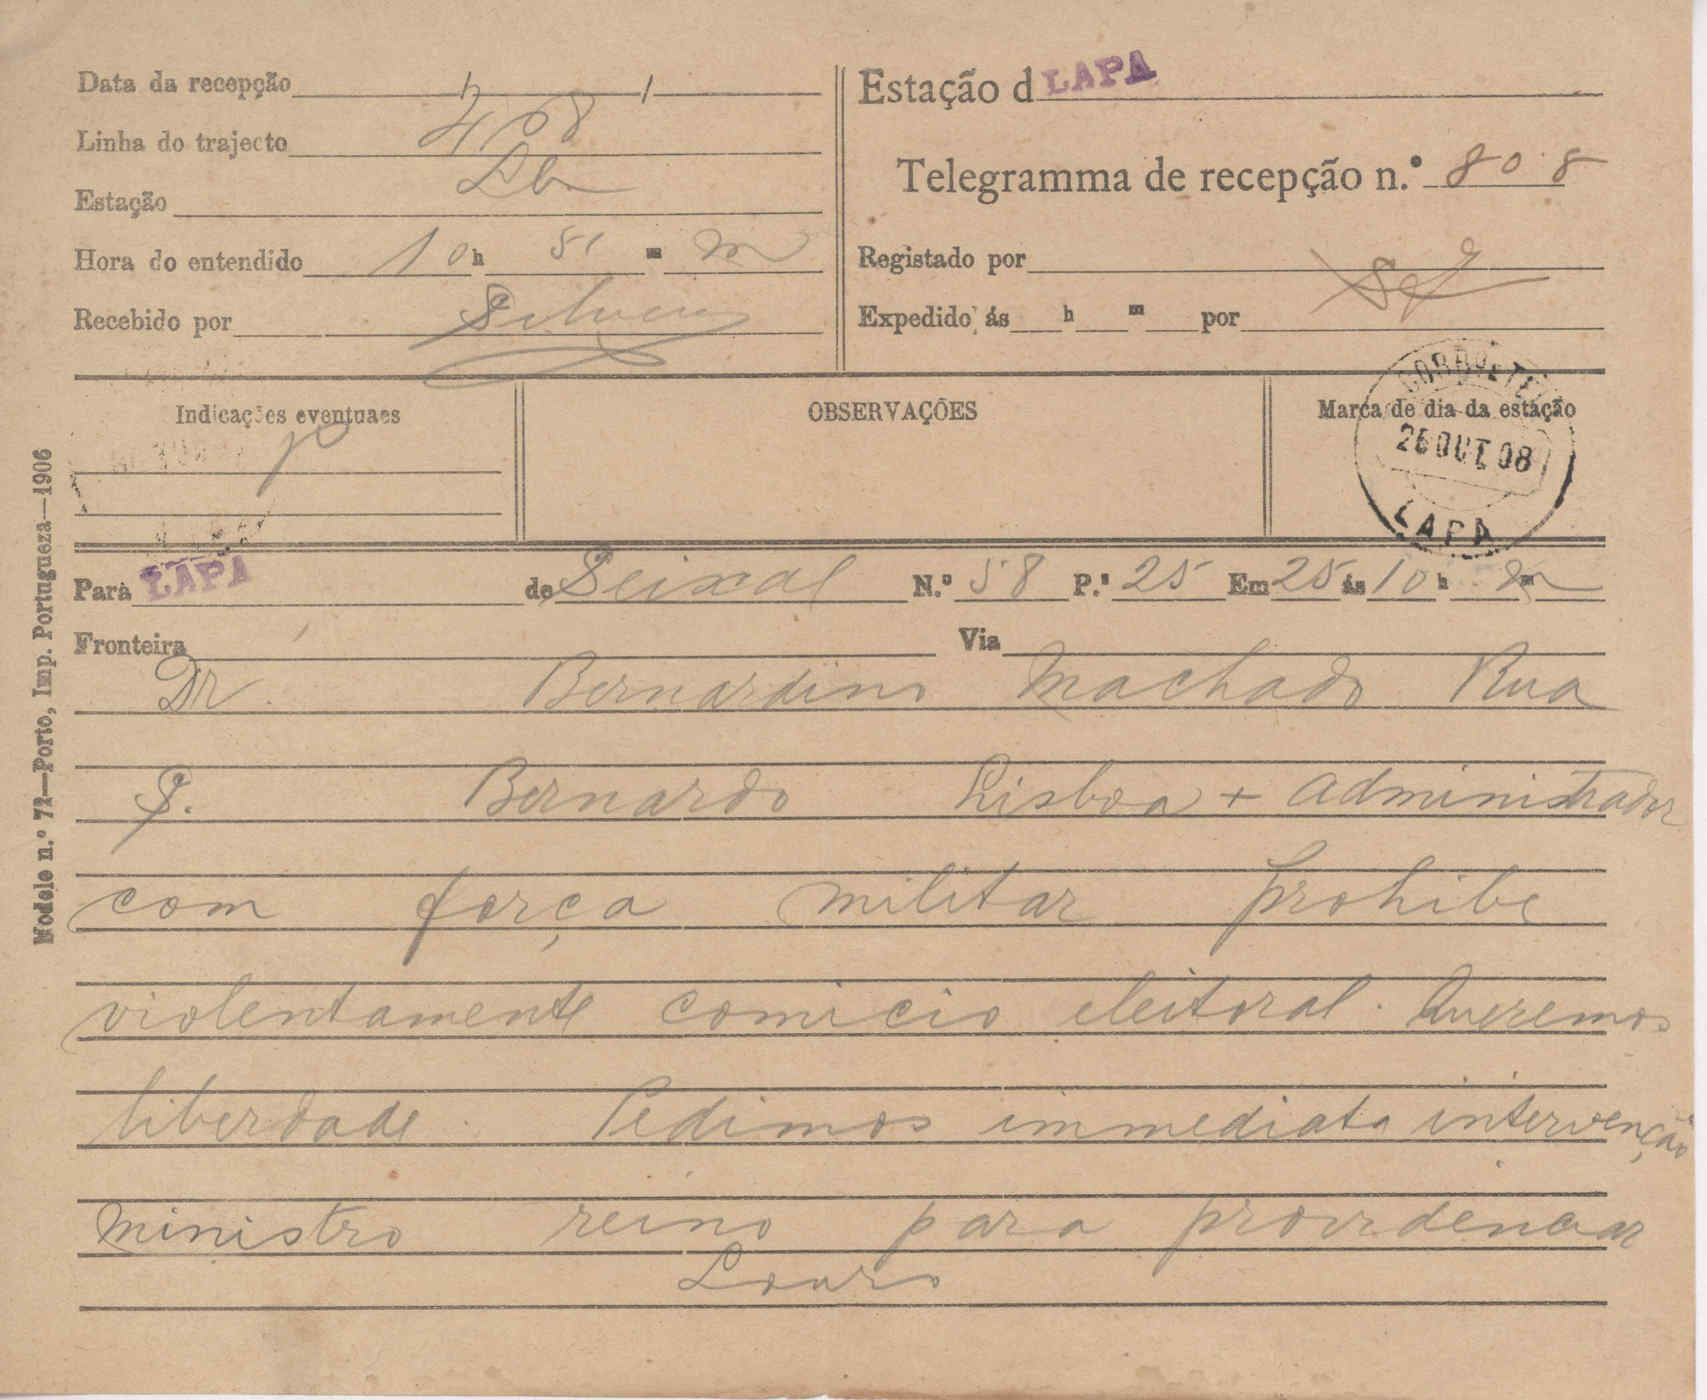 Data da recepção
Estação d LAPA
Linha do trajecto 468
Estação Lb
Telegramma de recepção n.º 808
Hora do entendido 10 h 51 m m
Registado por
Recebido por Silveira
Expedido ás h m por
Indicações eventuaes
OBSERVAÇÕES
Marca de dia da estação
26 OUT. 08
LAPA
Para LAPA de Seixal N.º 58 P.ˢ 25 Em 25 ás 10 h m m
Fronteira Via
Dr. Bernardino Machado Rua
S. Bernardo Lisboa + administrador
com força militar prohibe
violentamente comicio eleitoral. Queremos
liberdade. Pedimos immediata intervenção
ministro reino para providenciar
Louro
Modelo n.º 72—Porto, Imp. Portugueza—1906